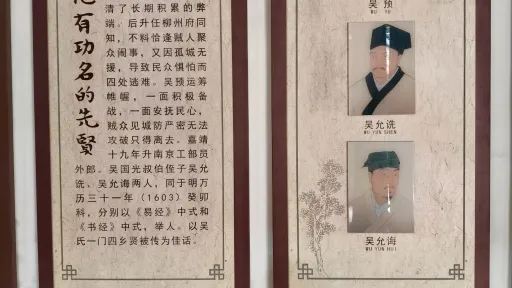 有功名的先贤
清了长期积累的弊
端。后升任柳州府同
知，不料恰逢贼人聚
众闹事，又因孤城无
援，导致民众惧怕而
四处逃难。吴预运筹
帷幄，一面积极备
战，一面安抚民心，
贼众见城防严密无法
攻破只得离去。嘉靖
十九年升南京工部员
外郎。吴国光叔伯侄子吴允
诜、吴允诲两人，同于明万
历三十一年（1603）癸卯
科，分别以《易经》中式和
《书经》中式，举人。以吴
氏一门四乡贤被传为佳话。
吴预
WU YU
吴允诜
WU YUN SHEN
吴允诲
WU YUN HUI